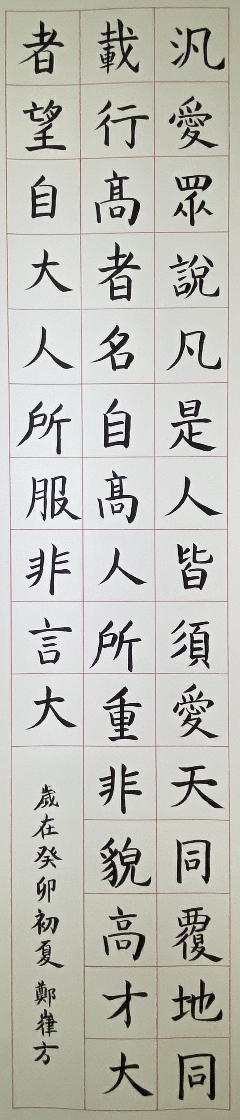 汎愛眾說凡是人皆須愛天同覆地同
載行高者名自高人所重非貌高才大
者望自大人所服非言大
歲在癸卯初夏 鄭嵂方